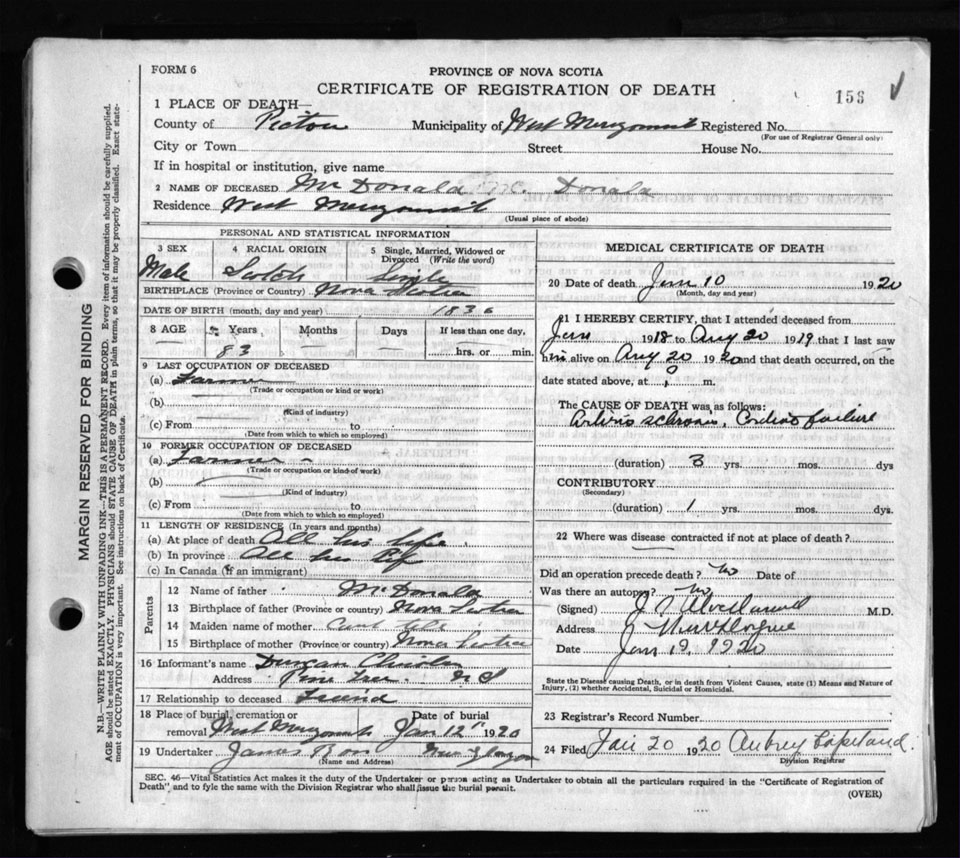 FORM 6
PROVINCE OF NOVA SCOTIA
CERTIFICATE OF REGISTRATION OF DEATH
156
1 PLACE OF DEATH—
County of Pictou Municipality of West Merigomish Registered No.
(For use of Registrar General only)
City or Town Street House No.
If in hospital or institution, give name
2 NAME OF DECEASED Mc Donald Mc. Donald
Residence West Merigomish
(Usual place of abode)
PERSONAL AND STATISTICAL INFORMATION
3 SEX 4 RACIAL ORIGIN 5 Single, Married, Widowed or Divorced (Write the word)
Male Scotch Single
BIRTHPLACE (Province or Country) Nova Scotia
DATE OF BIRTH (month, day and year) 1836
8 AGE Years Months Days If less than one day,
83 hrs. or min.
9 LAST OCCUPATION OF DECEASED
(a) Farmer
(Trade or occupation or kind or work)
(b)
(Kind of industry)
(c) From to
(Date from which to which so employed)
10 FORMER OCCUPATION OF DECEASED
(a) Farmer
(Trade or occupation or kind or work)
(b)
(Kind of industry)
(c) From to
(Date from which to which so employed)
11 LENGTH OF RESIDENCE (In years and months)
(a) At place of death All his life
(b) In province All his life
(c) In Canada (if an immigrant)
Parents
12 Name of father McDonald
13 Birthplace of father (Province or country) Nova Scotia
14 Maiden name of mother Cant tell
15 Birthplace of mother (Province or country) Nova Scotia
16 Informant's name Duncan
Address Pine Tree N S
17 Relationship to deceased Friend
18 Place of burial, cremation or removal West Merigomish Date of burial Jan 12 1920
19 Undertaker James Ross New Glasgow
(Name and Address)
MEDICAL CERTIFICATE OF DEATH
20 Date of death Jan 10 1920
(Month, day and year)
21 I HEREBY CERTIFY, that I attended deceased from
Jan 1918 to Aug 20 1919 that I last saw
him alive on Aug 20 1920 and that death occurred, on the
date stated above, at m.
The CAUSE OF DEATH was as follows:
Arterio sclerosis, Cardiac failure
(duration) 3 yrs. mos. dys
CONTRIBUTORY
(Secondary)
(duration) 1 yrs. mos. dys.
22 Where was disease contracted if not at place of death?
Did an operation precede death? no Date of
Was there an autopsy? no
(Signed) M.D.
Address
Date Jan 19, 1920
State the Disease causing Death, or in death from Violent Causes, state (1) Means and Nature of
Injury, (2) whether Accidental, Suicidal or Homicidal.
23 Registrar's Record Number
24 Filed Jan 20 1920 Aubrey Copeland.
Division Registrar
SEC. 46—Vital Statistics Act makes it the duty of the Undertaker or person acting as Undertaker to obtain all the particulars required in the "Certificate of Registration of
Death" and to fyle the same with the Division Registrar who shall issue the burial permit.
(OVER)
MARGIN RESERVED FOR BINDING
N.B.—WRITE PLAINLY WITH UNFADING INK—THIS IS A PERMANENT RECORD. Every item of information should be carefully supplied.
AGE should be stated EXACTLY. PHYSICIANS should STATE CAUSE OF DEATH in plain terms, so that it may be properly classified. Exact state-
ment of OCCUPATION is very important. See instructions on back of Certificate.